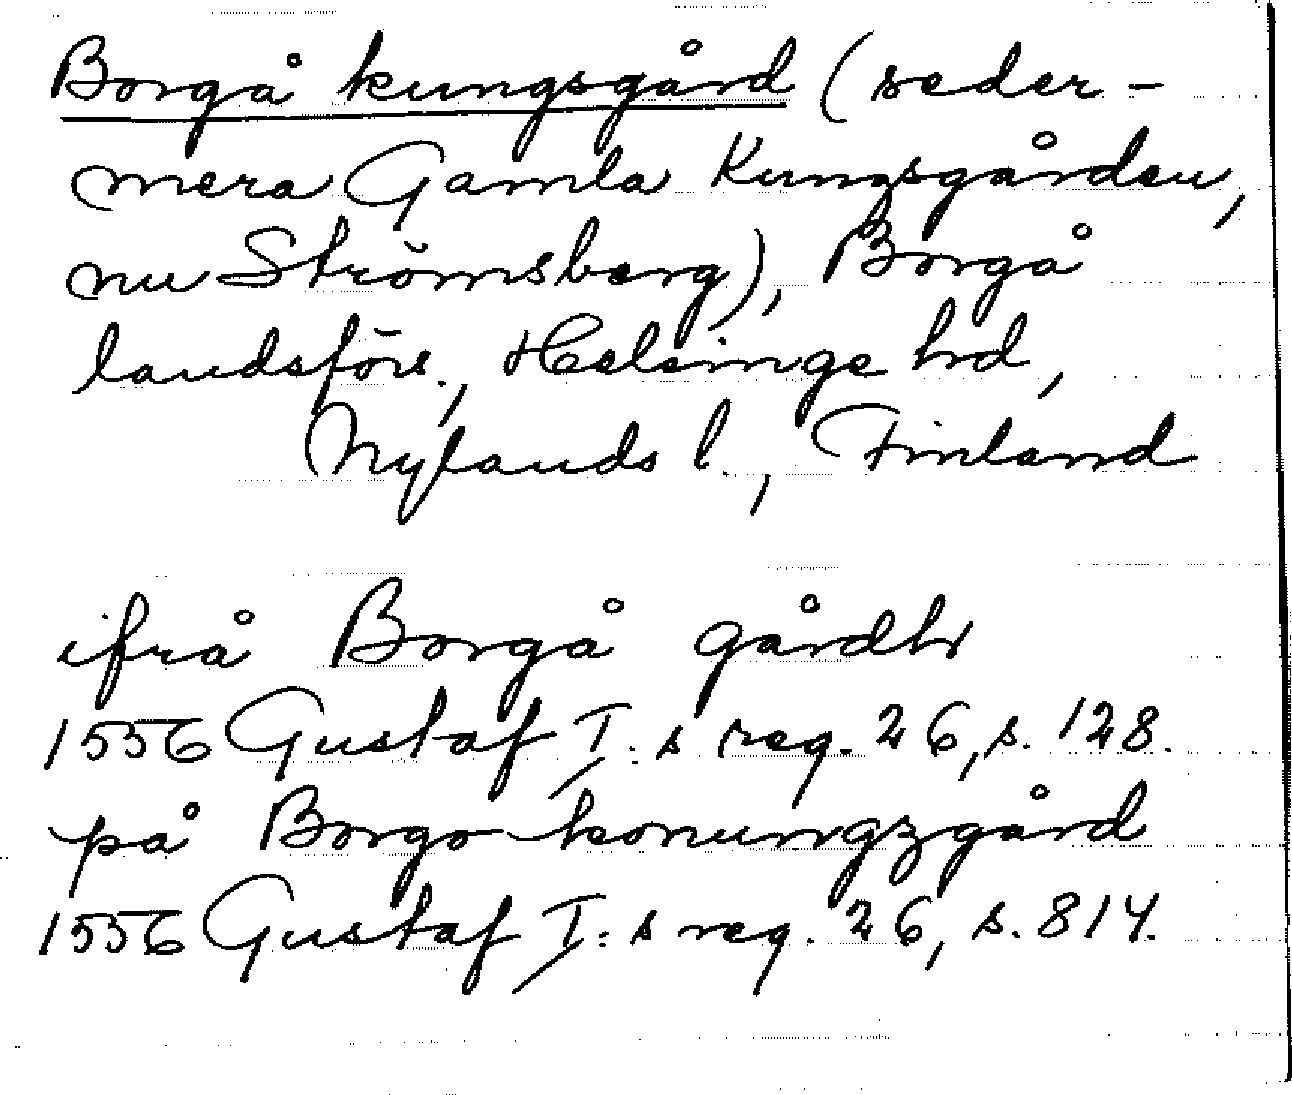 Borgå kungsgård (seder-
mera Gamla Kungsgården,
nu Strömsberg), Borgå
landsförs., Helsinge hrd,
Nylands l., Finland
ifrå Borgå gårdh
1556 Gustaf I:s reg. 26, s. 128.
på Borgo konungzgård
1556 Gustaf I:s reg. 26, s. 814.